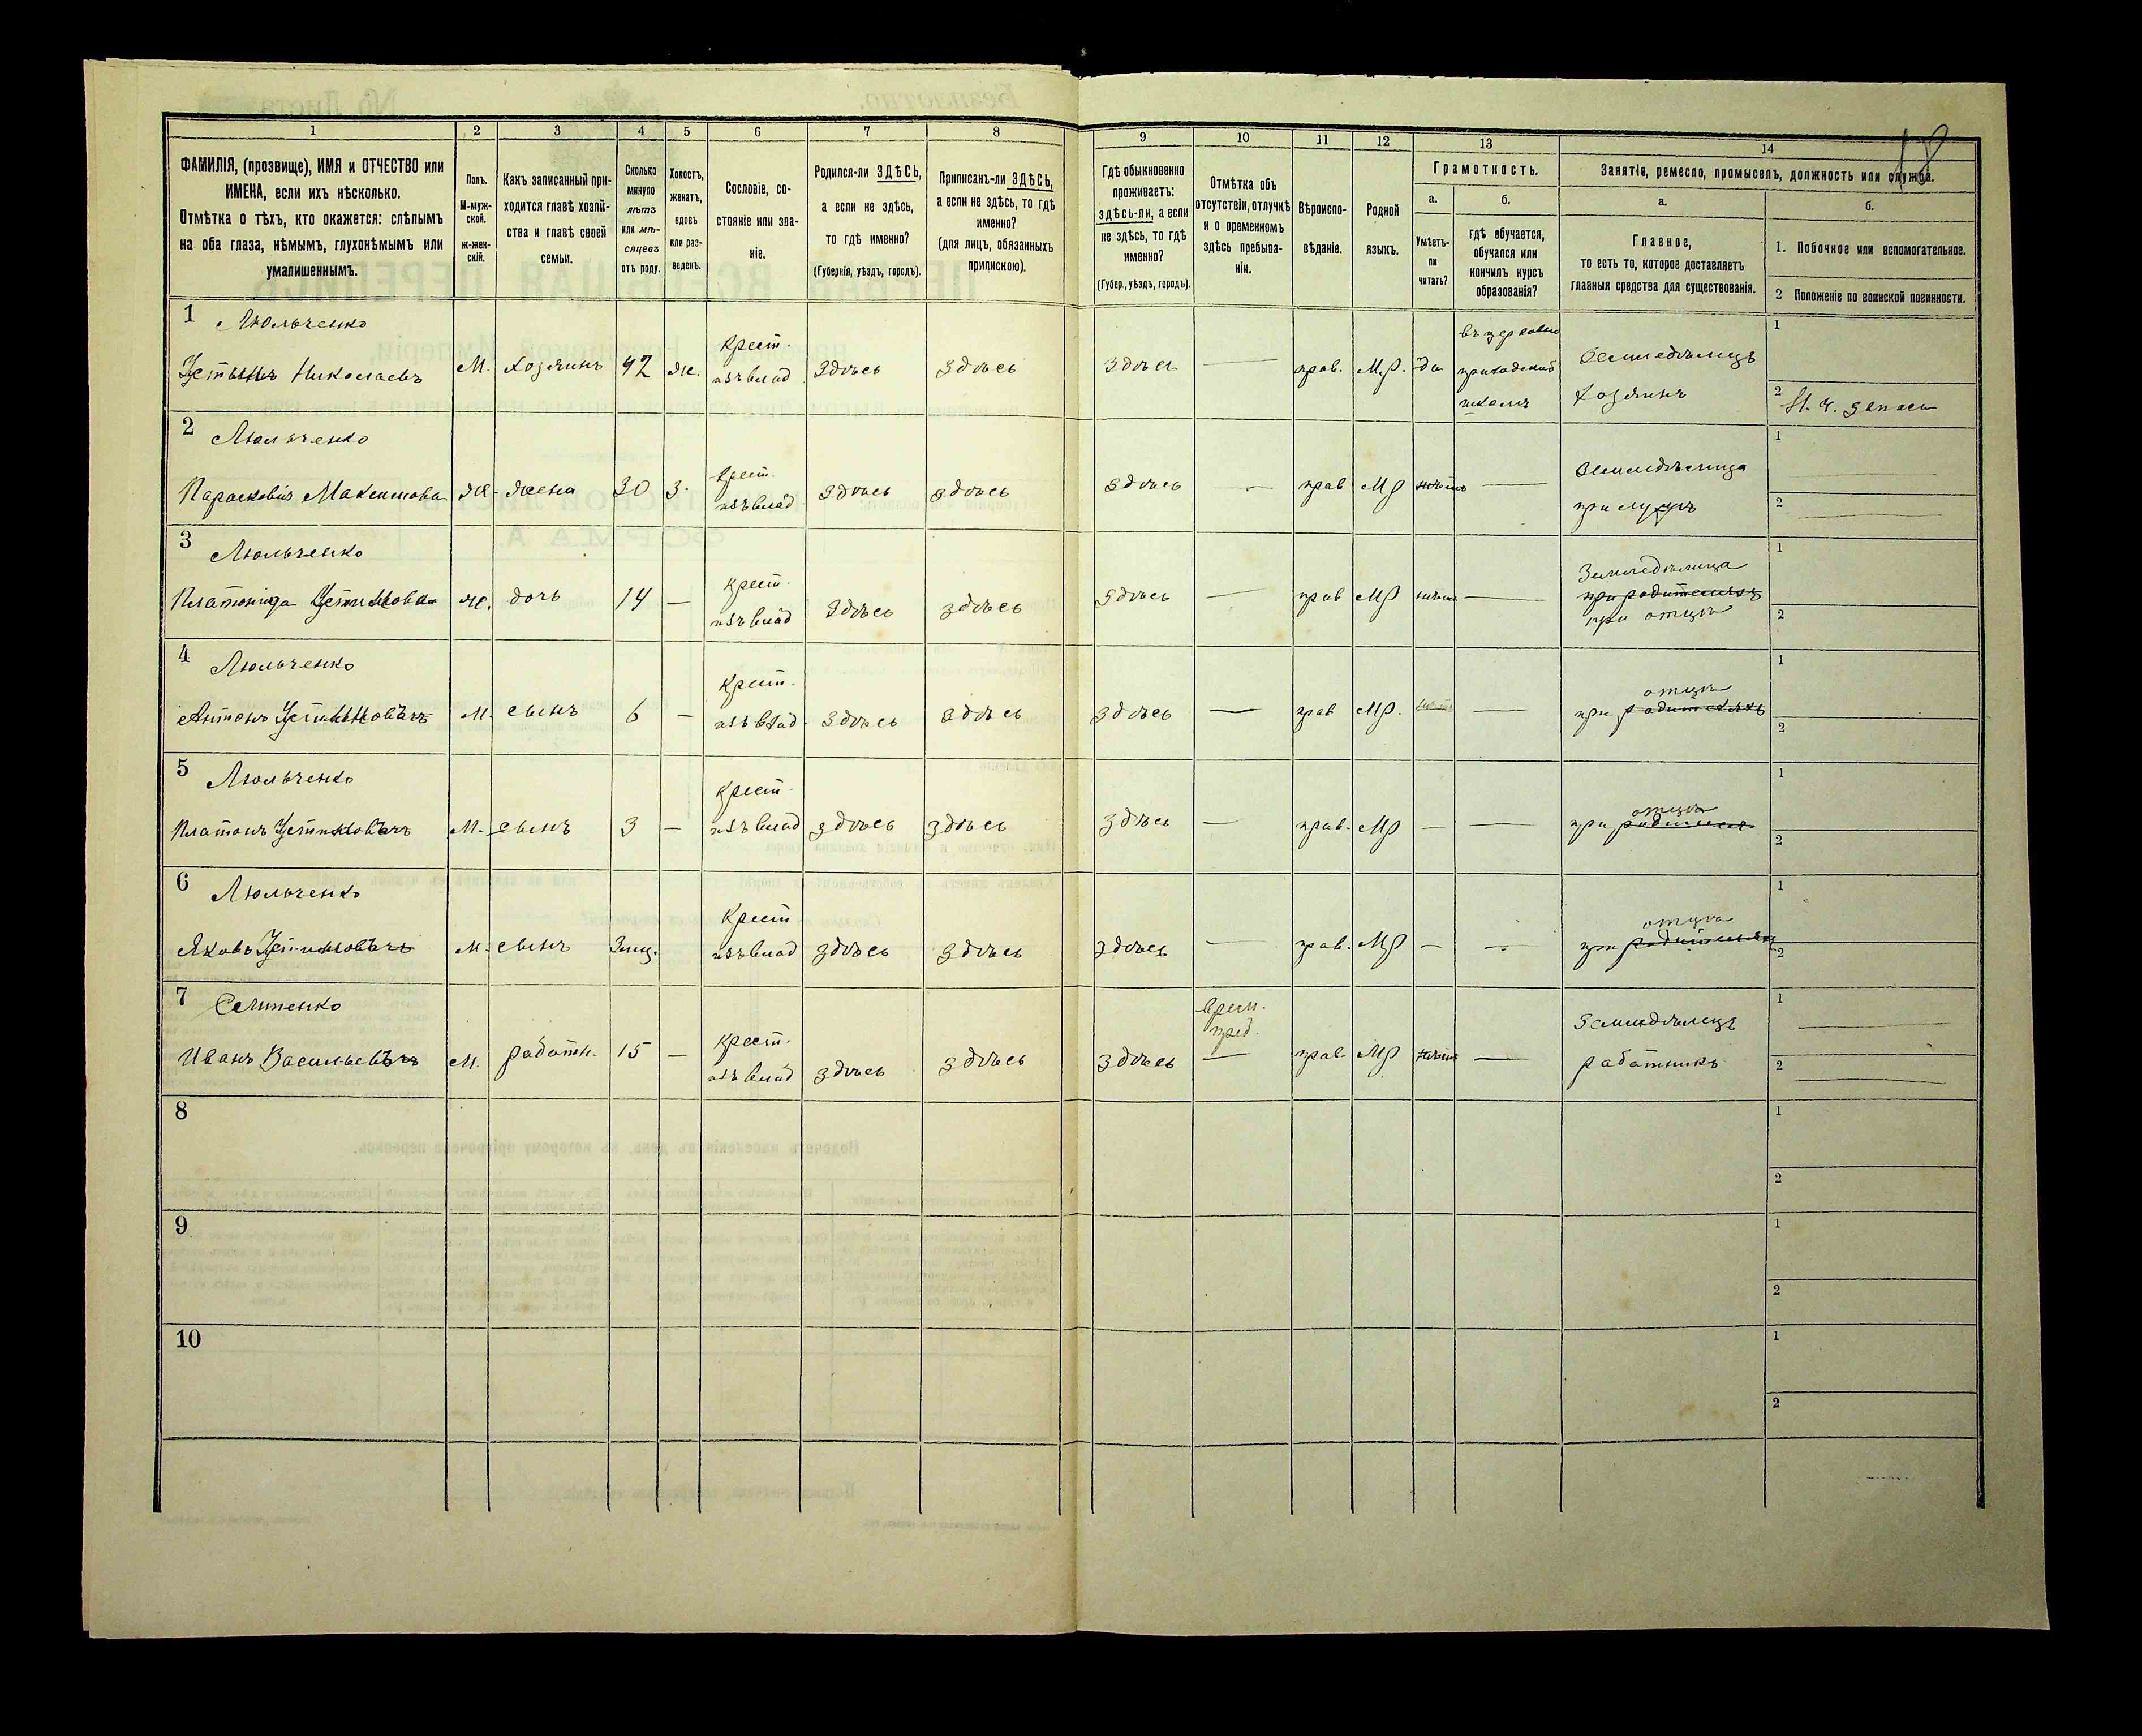 18
1 2 3 4 5 6 7 8 9 10 11 12 13 14
ФАМИЛІЯ, (прозвище), ИМЯ и ОТЧЕСТВО или
ИМЕНА, если ихъ нѣсколько.
Отмѣтка о тѣхъ, кто окажется: слѣпымъ
на оба глаза, нѣмымъ, глухонѣмымъ или
умалишеннымъ.
Полъ.
М-муж-
ской.
ж-жен-
скій.
Какъ записанный при-
ходится главѣ хозяй-
ства и главѣ своей
семьи.
Сколько
минуло
лѣтъ
или мѣ-
сяцевъ
отъ роду.
Холостъ,
женатъ,
вдовъ
или раз-
веденъ.
Сословіе, со-
стояніе или зва-
ніе.
Родился-ли ЗДѢСЬ,
а если не здѣсь,
то гдѣ именно?
(Губернія, уѣздъ, городъ).
Приписанъ-ли ЗДѢСЬ,
а если не здѣсь, то гдѣ
именно?
(для лицъ, обязанныхъ
припискою).
Гдѣ обыкновенно
проживаетъ:
здѣсь-ли, а если
не здѣсь, то гдѣ
именно?
(Губер., уѣздъ, городъ).
Отмѣтка объ
отсутствіи, отлучкѣ
и о временномъ
здѣсь пребыва-
ніи.
Вѣроиспо-
вѣданіе.
Родной
языкъ.
Грамотность.
а.
Умѣетъ-
ли
читать?
б.
гдѣ обучается,
обучался или
кончилъ курсъ
образованія?
Занятіе, ремесло, промыселъ, должность или служба.
а.
Главное,
то есть то, которое доставляетъ
главныя средства для существованія.
б.
1. Побочное или вспомогательное.
2 Положеніе по воинской повинности.
1 Люльченко
Николаевъ М. хозяинъ 42 ж. крест. изъ влад здѣсь здѣсь здѣсь — прав. М.р. да
въ церковно
приходской
школѣ
Земледѣлецъ
хозяинъ
1
2
2 Люльченко
Параскевія Максимова ж. жена 30 з. крест. изъ влад здѣсь здѣсь здѣсь — прав МР —
Земледѣлица
при мужѣ
1
2
3 Люльченко
Платонида Устимова ж. дочь 14 — крест. изъ влад здѣсь здѣсь здѣсь — прав МР —
Земледѣлица
при родителяхъ
при отцѣ
1
2
4 Люльченко
Антонъ М. сынъ 6 — крест. изъ влад здѣсь здѣсь здѣсь — прав МР. —
отцѣ
при родителяхъ
1
2
5 Люльченко
Платонъ М. сынъ 3 — крест. изъ влад здѣсь здѣсь здѣсь — прав. МР — —
отцѣ
при
1
2
6 Люльченко
Яковъ М. сынъ 3 мѣс. крест изъ влад здѣсь здѣсь здѣсь — прав. МР — —
отцѣ
при родителяхъ
1
2
7
Иванъ М. работн. 15 — крест. изъ влад здѣсь здѣсь здѣсь — прав. МР —
Земледѣлецъ
работникъ
1
2
8 1
2
9 1
2
10 1
2